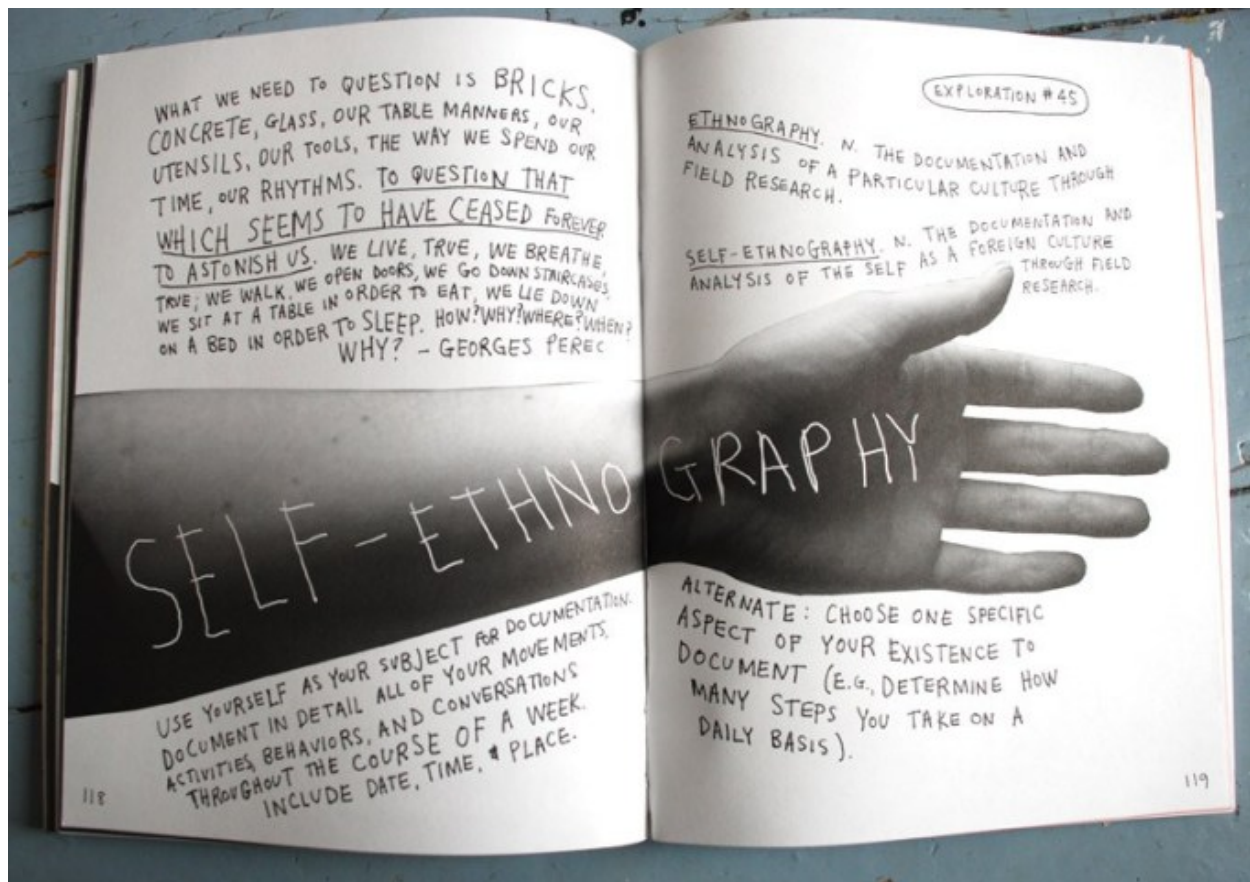 WHAT WE NEED TO QUESTION IS BRICKS,
CONCRETE, GLASS, OUR TABLE MANNERS, OUR
UTENSILS, OUR TOOLS, THE WAY WE SPEND OUR
TIME, OUR RHYTHMS. TO QUESTION THAT
WHICH SEEMS TO HAVE CEASED FOREVER
TO ASTONISH US. WE LIVE, TRUE, WE BREATHE,
TRUE; WE WALK, WE OPEN DOORS, WE GO DOWN STAIRCASES,
WE SIT AT A TABLE IN ORDER TO EAT, WE LIE DOWN
ON A BED IN ORDER TO SLEEP. HOW? WHY? WHERE? WHEN?
WHY? – GEORGES PEREC
SELF-ETHNOGRAPHY
USE YOURSELF AS YOUR SUBJECT FOR DOCUMENTATION.
DOCUMENT IN DETAIL ALL OF YOUR MOVEMENTS,
ACTIVITIES, BEHAVIORS, AND CONVERSATIONS
THROUGHOUT THE COURSE OF A WEEK.
INCLUDE DATE, TIME, & PLACE.
118
EXPLORATION #45
ETHNOGRAPHY. N. THE DOCUMENTATION AND
ANALYSIS OF A PARTICULAR CULTURE THROUGH
FIELD RESEARCH.
SELF-ETHNOGRAPHY. N. THE DOCUMENTATION AND
ANALYSIS OF THE SELF AS A FOREIGN CULTURE
THROUGH FIELD
RESEARCH.
ALTERNATE: CHOOSE ONE SPECIFIC
ASPECT OF YOUR EXISTENCE TO
DOCUMENT (E.G., DETERMINE HOW
MANY STEPS YOU TAKE ON A
DAILY BASIS).
119